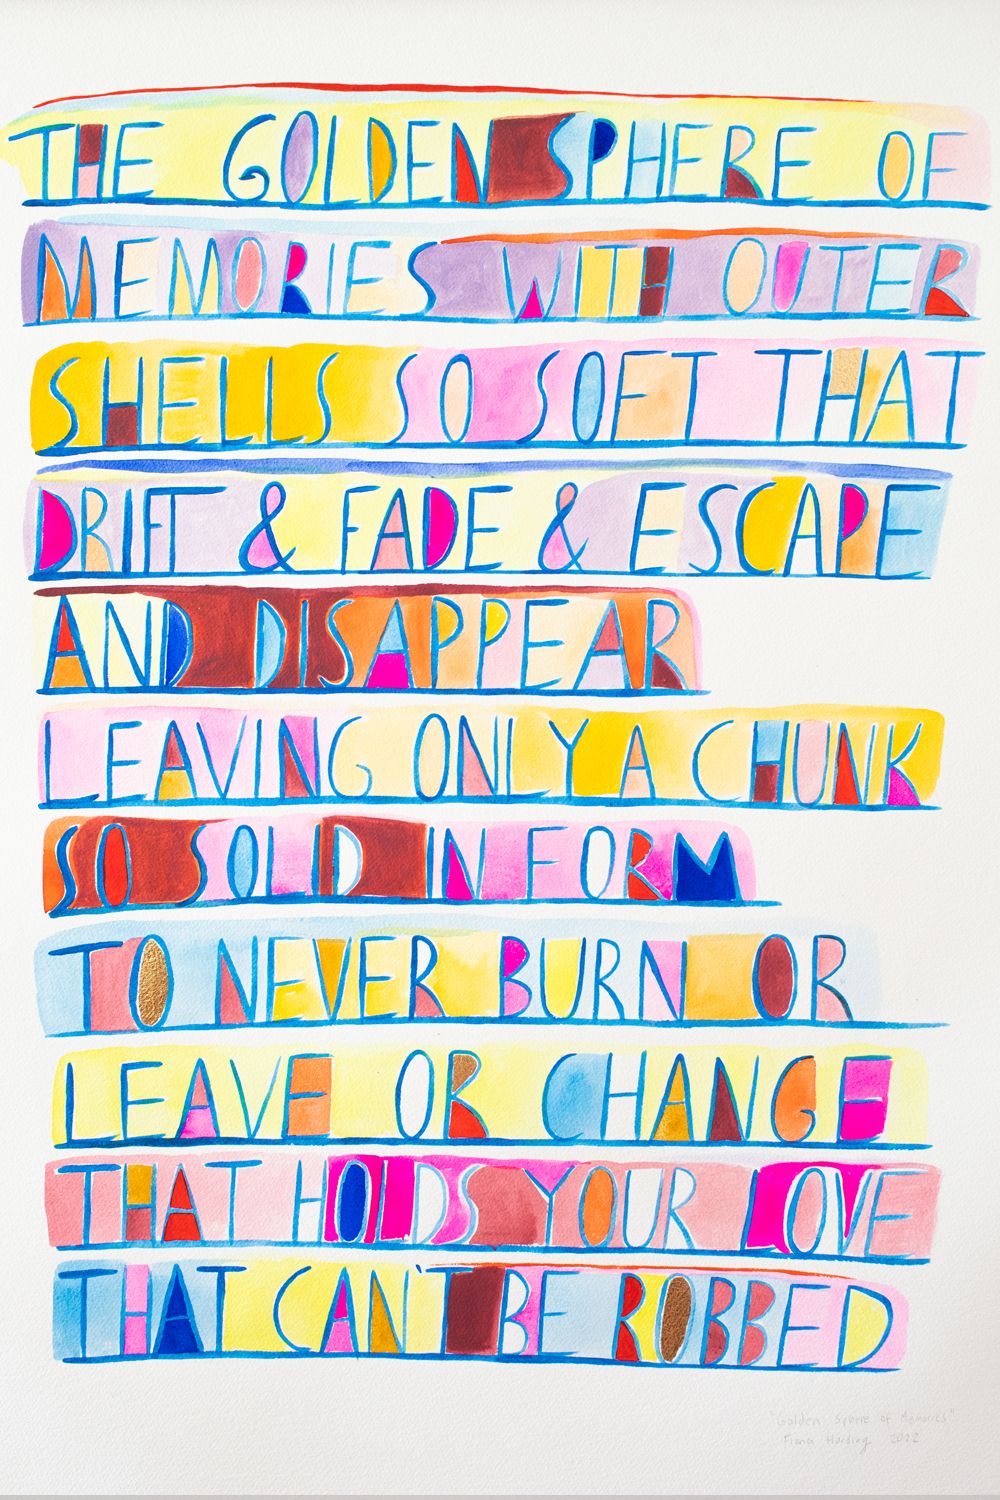 THE GOLDEN SPHERE OF
MEMORIES WITH OUTER
SHELLS SO SOFT THAT
DRIFT & FADE & ESCAPE
AND DISAPPEAR
LEAVING ONLY A CHUNK
SO SOLID IN FORM
TO NEVER BURN OR
LEAVE OR CHANGE
THAT HOLDS YOUR LOVE
THAT CAN'T BE ROBBED
"Golden Sphere of Memories"
Fiona Harding 2022